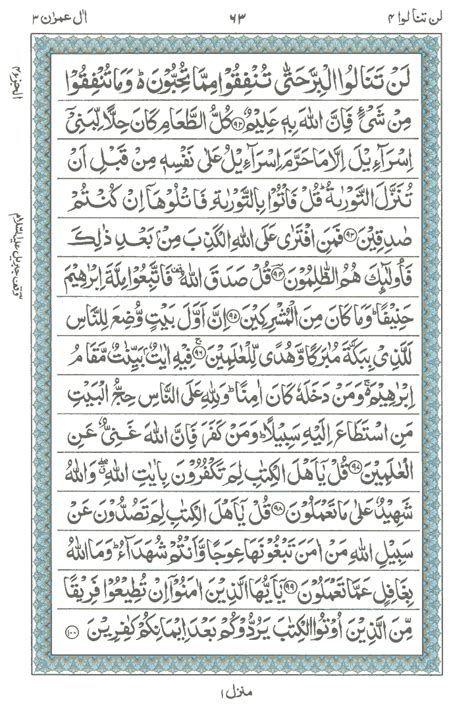 لن تنالوا ۴
۶۳
اٰل عمرٰن ۳
لَنْ تَنَالُوا الْبِرَّ حَتّٰى تُنْفِقُوْا مِمَّا تُحِبُّوْنَ ؕ وَ مَا تُنْفِقُوْا
مِنْ شَیْءٍ فَاِنَّ اللّٰهَ بِهٖ عَلِیْمٌ ﴿۹۲﴾ كُلُّ الطَّعَامِ كَانَ حِلًّا لِّبَنِیْۤ
اِسْرَآءِیْلَ اِلَّا مَا حَرَّمَ اِسْرَآءِیْلُ عَلٰى نَفْسِهٖ مِنْ قَبْلِ اَنْ
تُنَزَّلَ التَّوْرٰىةُ ؕ قُلْ فَاْتُوْا بِالتَّوْرٰىةِ فَاتْلُوْهَاۤ اِنْ كُنْتُمْ
صٰدِقِیْنَ ﴿۹۳﴾ فَمَنِ افْتَرٰى عَلَى اللّٰهِ الْكَذِبَ مِنْۢ بَعْدِ ذٰلِكَ
فَاُولٰٓىِٕكَ هُمُ الظّٰلِمُوْنَ ﴿۹۴﴾ قُلْ صَدَقَ اللّٰهُ ۫ فَاتَّبِعُوْا مِلَّةَ اِبْرٰهِیْمَ
حَنِیْفًا ؕ وَ مَا كَانَ مِنَ الْمُشْرِكِیْنَ ﴿۹۵﴾ اِنَّ اَوَّلَ بَیْتٍ وُّضِعَ لِلنَّاسِ
لَلَّذِیْ بِبَكَّةَ مُبٰرَكًا وَّ هُدًى لِّلْعٰلَمِیْنَ ﴿۹۶﴾ فِیْهِ اٰیٰتٌۢ بَیِّنٰتٌ مَّقَامُ
اِبْرٰهِیْمَ ۚ وَ مَنْ دَخَلَهٗ كَانَ اٰمِنًا ؕ وَ لِلّٰهِ عَلَى النَّاسِ حِجُّ الْبَیْتِ
مَنِ اسْتَطَاعَ اِلَیْهِ سَبِیْلًا ؕ وَ مَنْ كَفَرَ فَاِنَّ اللّٰهَ غَنِیٌّ عَنِ
الْعٰلَمِیْنَ ﴿۹۷﴾ قُلْ یٰۤاَهْلَ الْكِتٰبِ لِمَ تَكْفُرُوْنَ بِاٰیٰتِ اللّٰهِ ۖۗ وَ اللّٰهُ
شَهِیْدٌ عَلٰى مَا تَعْمَلُوْنَ ﴿۹۸﴾ قُلْ یٰۤاَهْلَ الْكِتٰبِ لِمَ تَصُدُّوْنَ عَنْ
سَبِیْلِ اللّٰهِ مَنْ اٰمَنَ تَبْغُوْنَهَا عِوَجًا وَّ اَنْتُمْ شُهَدَآءُ ؕ وَ مَا اللّٰهُ
بِغَافِلٍ عَمَّا تَعْمَلُوْنَ ﴿۹۹﴾ یٰۤاَیُّهَا الَّذِیْنَ اٰمَنُوْۤا اِنْ تُطِیْعُوْا فَرِیْقًا
مِّنَ الَّذِیْنَ اُوْتُوا الْكِتٰبَ یَرُدُّوْكُمْ بَعْدَ اِیْمَانِكُمْ كٰفِرِیْنَ ﴿۱۰۰﴾
الجزء ۴
وقف جبریل علیه السلام
منزل ۱